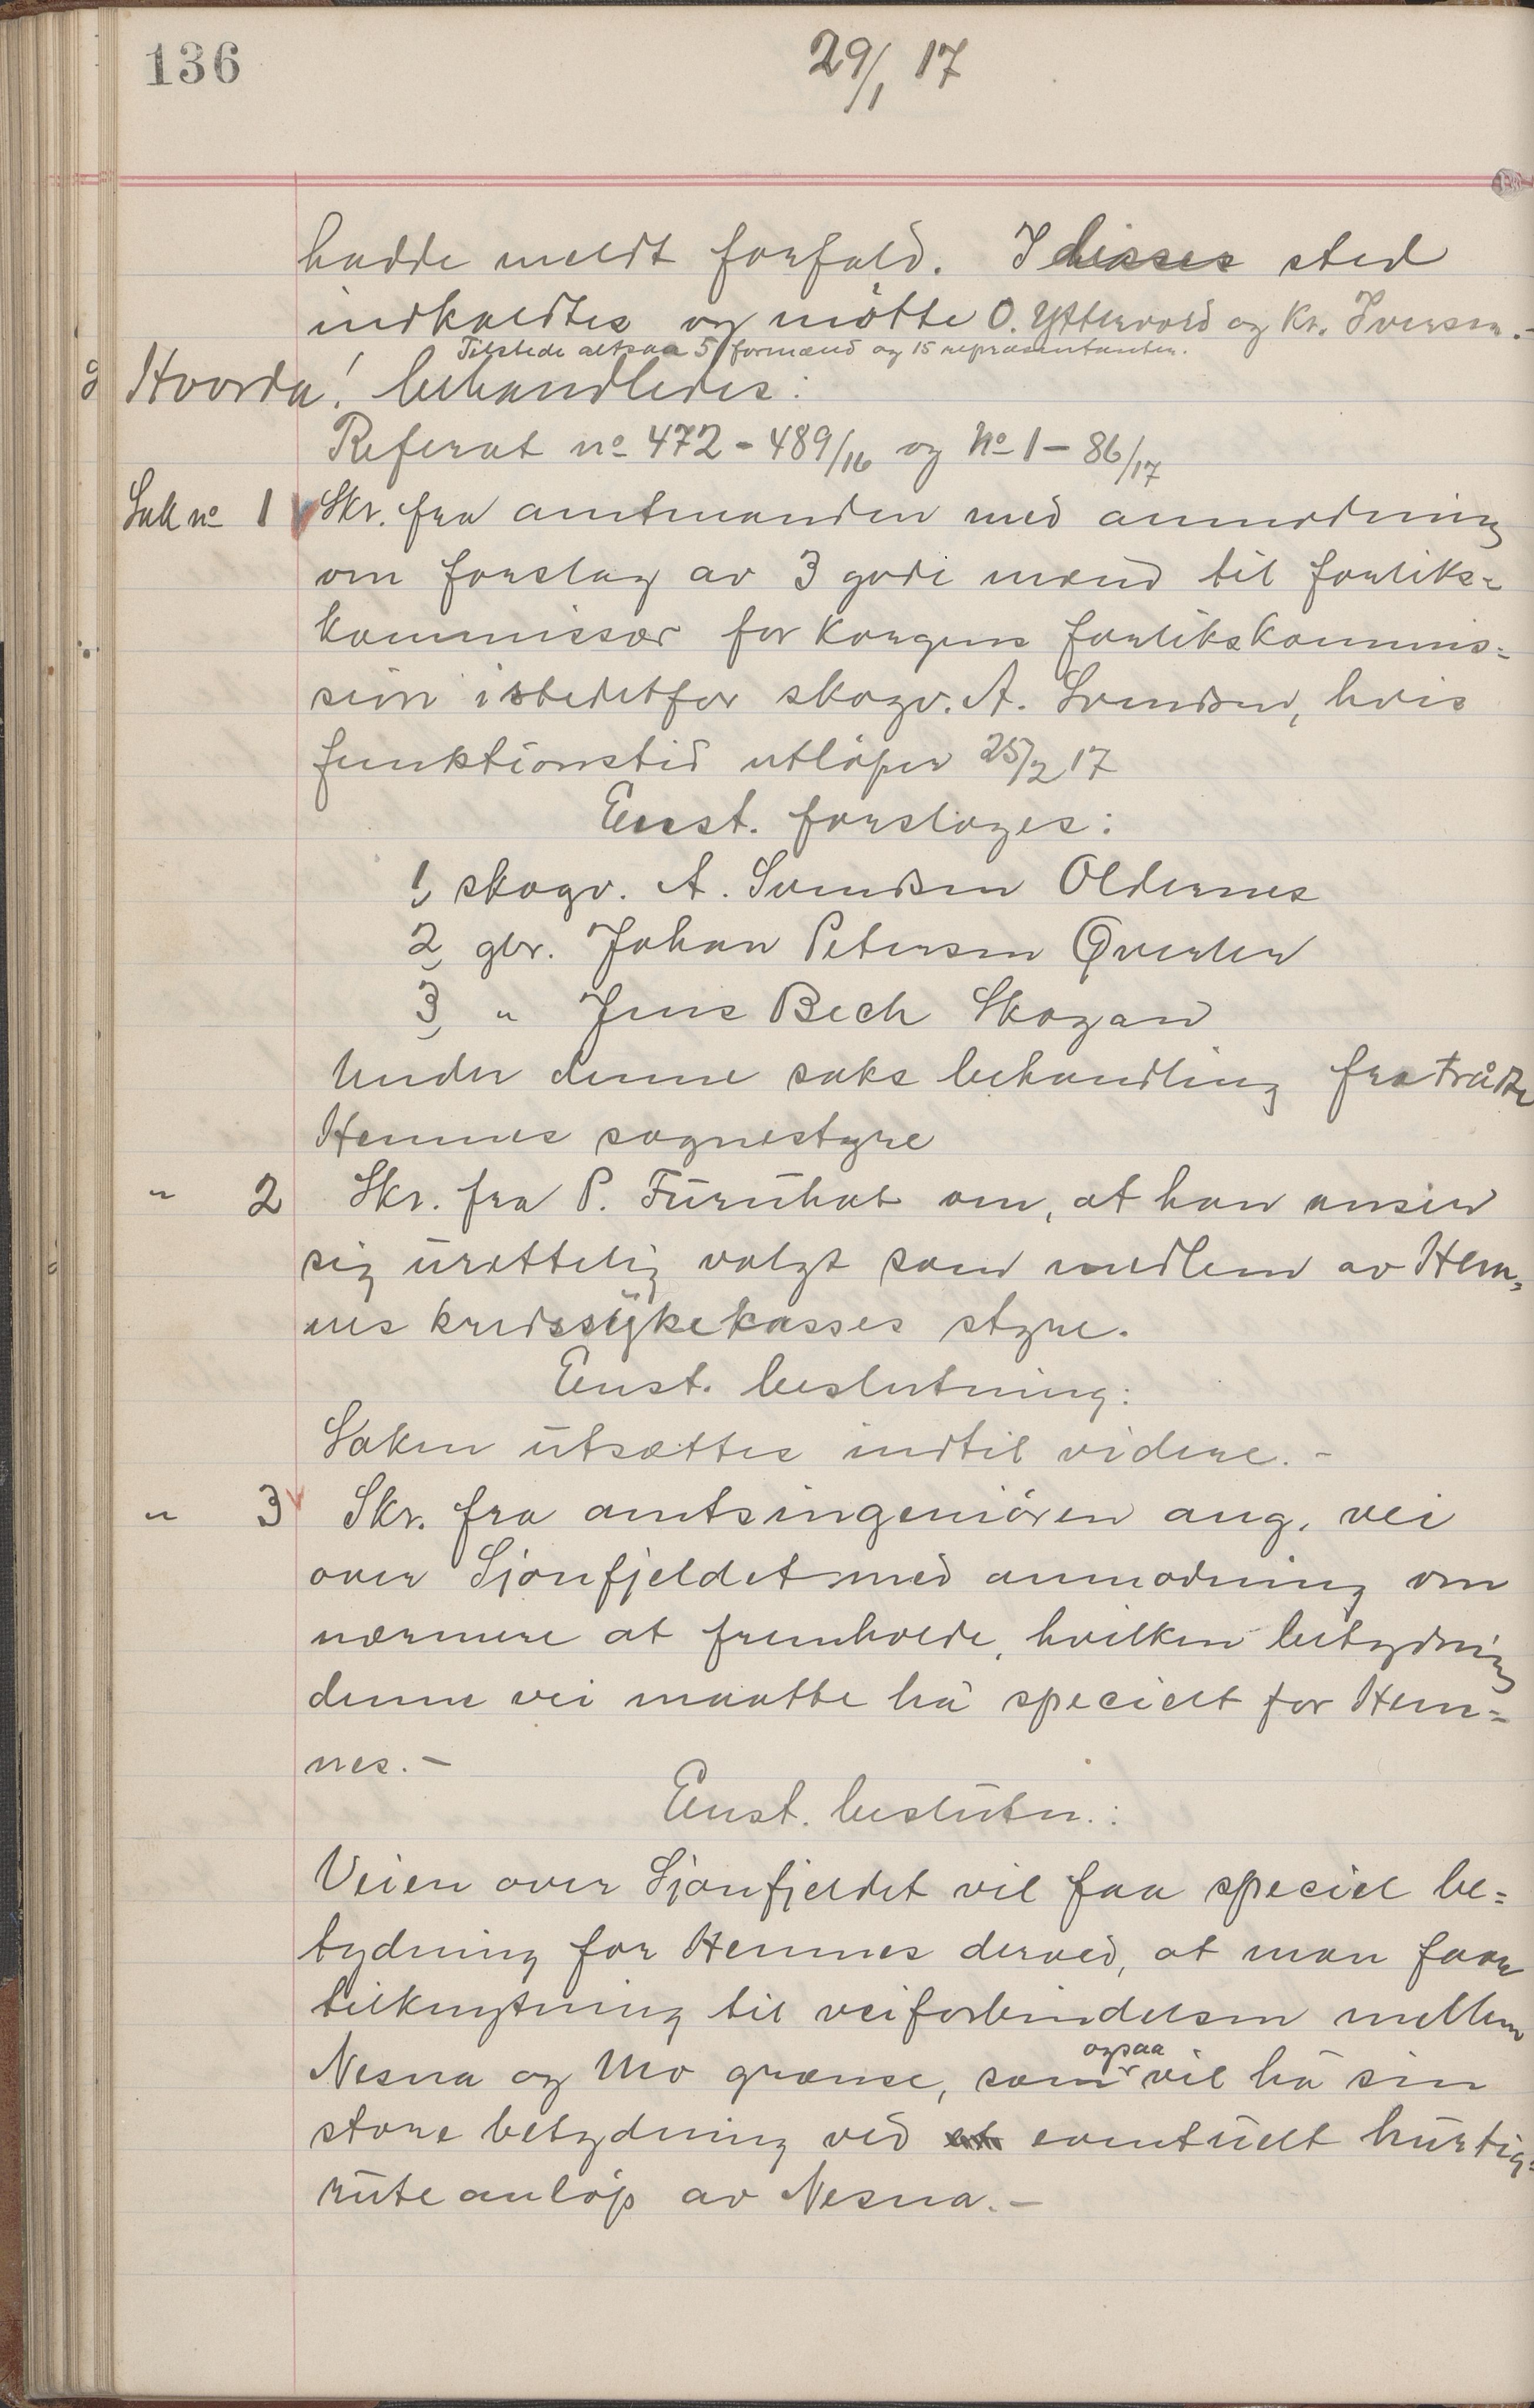 136
29/1 17
hadde meldt forfald. I disses sted
indkaldtes og møtte O. Yttervold og Kr. Iversen.-
Tilstede altsaa 5 formænd og 15 repræsentanter.
Hvorda! behandledes:
Referat no 472 - 489/16 og No 1 - 86/17
Sak no 1 Skr. fra amtmanden med anmodning
om forslag av 3 gode mænd til forliks=
kommissær for Korgens forlikskommis=
sion istedetfor skogv. A. Svendsen, hvis
funktionstid utløper 25/2 17
Enst. forslages:
1, skogv. A. Svendsen Oldernes
2, gbr. Johan Petersen Qverlen
3, " Jens Bech Skogan
Under denne saks behandling fratrådte
Hemnes sognestyre
" 2 Skr. fra P. Furuhat om, at han anser
sig urettelig valgt som medlem av Hem=
nes kredssykekasses styre.
Enst. beslutning:
Saken utsættes indtil videre. -
" 3 Skr. fra amtsingeniøren ang. vei
over Sjonfjeldet med anmodning om
nærmere at fremholde, hvilken betydning
denne vei maatte ha specielt for Hem=
nes. -
Enst. beslutn.:
Veien over Sjonfjeldet vil faa speciel be=
tydning for Hemnes derved, at man faar
tilknytning til veiforbindelsen mellem
Nesna og Mo grænse, som ogsaa vil ha sin
store betydning ved et eventuelt hurtig=
ruteanløp av Nesna. -